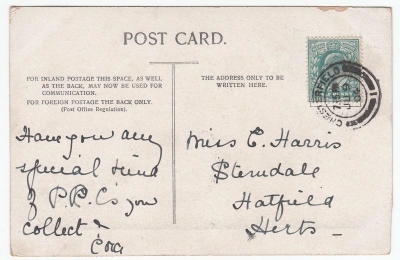 POST CARD.
FOR INLAND POSTAGE THIS SPACE, AS WELL
AS THE BACK, MAY NOW BE USED FOR
COMMUNICATION.
FOR FOREIGN POSTAGE THE BACK ONLY.
(Post Office Regulation).
THE ADDRESS ONLY TO BE
WRITTEN HERE.
Have you any
special kind
of P.P.C's you
collect &
Cora
Miss C. Harris
Sterndale
Hatfield
Herts
CHESTERFIELD